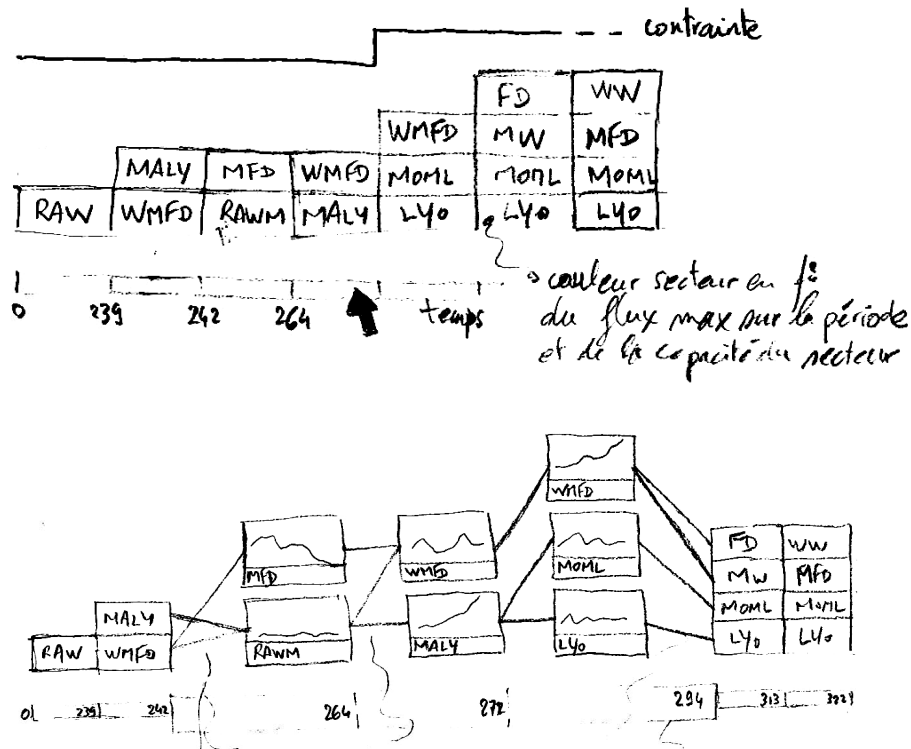 contrainte
FD WW
WMFD MW MFD
MALY MFD WMFD MOML MOML MOML
RAW WMFD RAWM MALY LYO LYO LYO
0 239 242 264 temps
couleur secteur en f°
du flux max sur la période
et de la capacité du secteur
WMFD
MFD WMFD MOML FD WW
MW MFD
MALY MOML MOML
RAW WMFD RAWM MALY LYO LYO LYO
0 239 242 264 272 294 313 322